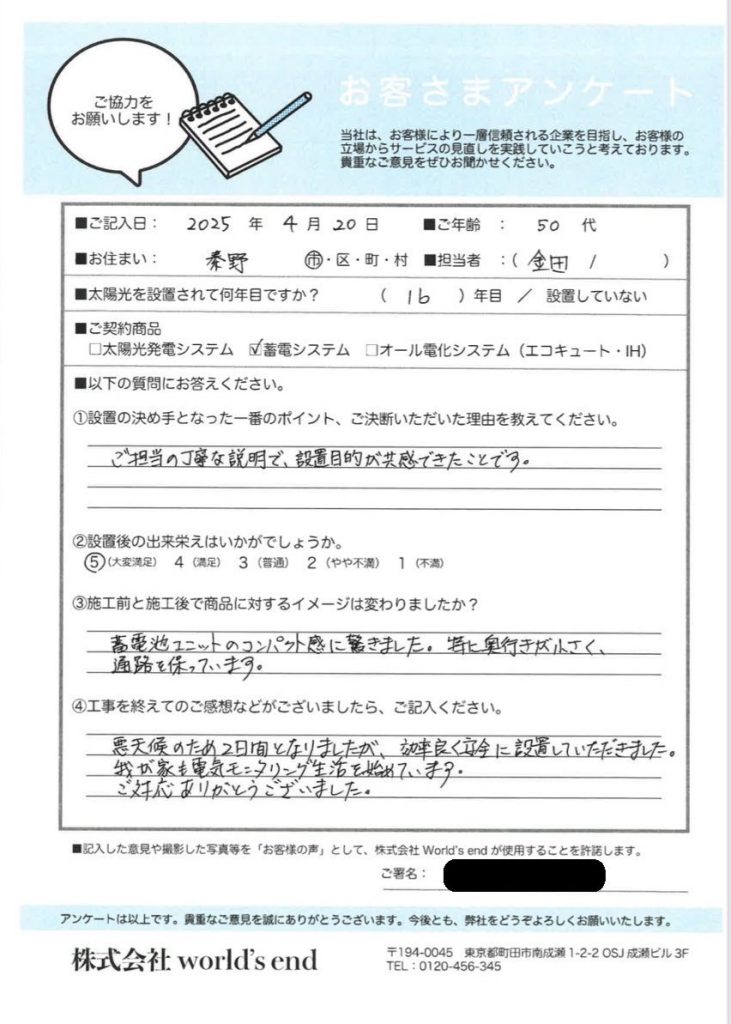 ご協力を
お願いします！
お客さまアンケート
当社は、お客様により一層信頼される企業を目指し、お客様の
立場からサービスの見直しを実践していこうと考えております。
貴重なご意見をぜひお聞かせください。
■ご記入日： 2025 年 4 月 20 日 ■ご年齢 ： 50 代
■お住まい： 秦野 市・区・町・村 ■担当者 ：( 金田 / )
■太陽光を設置されて何年目ですか？ ( 16 ) 年目 ／ 設置していない
■ご契約商品
□太陽光発電システム ☑蓄電システム □オール電化システム（エコキュート・IH）
■以下の質問にお答えください。
①設置の決め手となった一番のポイント、ご決断いただいた理由を教えてください。
ご担当の丁寧な説明で、設置目的が共感できたことです。
②設置後の出来栄えはいかがでしょうか。
⑤（大変満足） 4（満足） 3（普通） 2（やや不満） 1（不満）
③施工前と施工後で商品に対するイメージは変わりましたか？
蓄電池ユニットのコンパクト感に驚きました。特に奥行きが小さく、
通路を保っています。
④工事を終えてのご感想などがございましたら、ご記入ください。
悪天候のため2日間となりましたが、効率良く安全に設置していただきました。
我が家も電気モニタリング生活を始めています。
ご対応ありがとうございました。
■記入した意見や撮影した写真等を「お客様の声」として、株式会社 World's end が使用することを許諾します。
ご署名：
アンケートは以上です。貴重なご意見を誠にありがとうございます。今後とも、弊社をどうぞよろしくお願いいたします。
株式会社 world's end
〒194-0045 東京都町田市南成瀬 1-2-2 OSJ 成瀬ビル 3F
TEL：0120-456-345